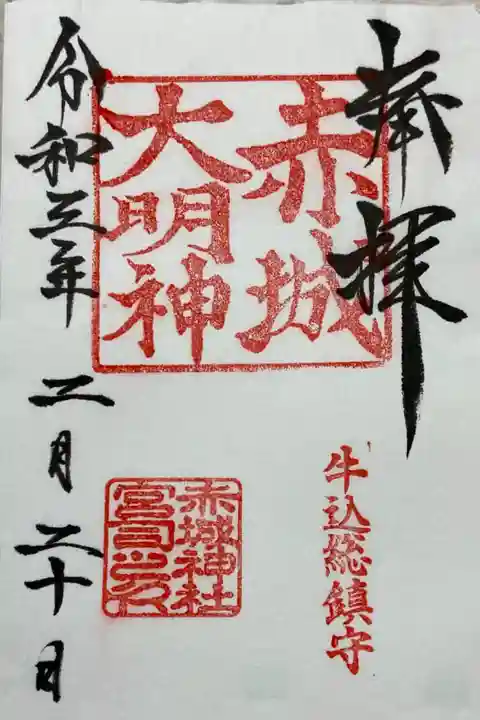 奉拝
赤城
大明神
牛込総鎮守
赤城神社
宮司之印
令和三年 二月二十日